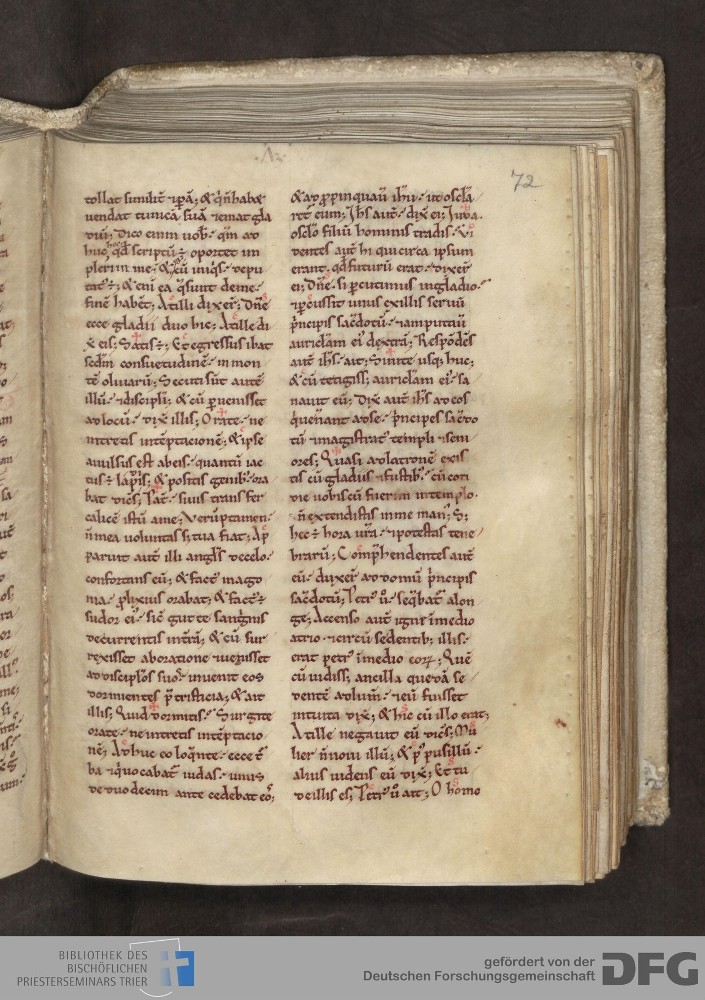 72
tollat similit͛ ⁊ perā; & qn̄ habæ
uendat tunicā suā ⁊ emat gla
diū; Dico enim uob̄ · qm̄ ad
huc hoc qđ scriptū ÷ oportet im
pleri in me · & cū iniq̄s · depu
tat᷒ ÷; & eni ea q̄ sunt de me ·
finē habēt; At illi dixer̄; Dn̄e
ecce gladii duo hic; At ille di
x̄ eis; Satis ÷; Et egressus ibat
scđm consuetudinē · in mon
tē oliuarū; Secuti sūt autē
illū · ⁊ discipli; & cū p̱uenisset
ad locū · dix̄ illis; Orate · ne
intretis in tēptacionē; & ipse
auulsus est ab eis · quantū iac
tus ÷ lapis; & positis genib; ora
bat dicēs; Pat̄ · si uis transfer
calicē istū a me; Verūptamen ·
n̄ mea uoluntas s; tua fiat; Ap
paruit aut̄ illi angl̄s de celo ·
confortans eū; & fact᷒ in ago
nia · prolixius orabat; & fact᷒ ÷
sudor ei᷒ · sic̄ gutte sanguinis
decurrentis in t̄rā; & cū sur
rexisset ab oratione ⁊ uenisset
ad disciplōs suos · inuenit eos
dormientes p̄ tristicia; & ait
illis; Quid dormitis · Surgite
orate · ne intretis in tēptacio
nē; Adhuc eo loq̄nte · ecce t᷒
ba ⁊ qui uocabat᷒ iudas · unus
de duodecim ante cedebat eos;
& adpropinquauit ihū · ut oscla
ret᷒ eum; Ihs aut̄ · dix̄ ei; Iuda ·
osclo filiū hominis tradis · Vi
dentes aut̄ hi qui circa ipsum
erant · qđ futurū erat · dixer̄
ei; Dn̄e · si percutimus in gladio ·
⁊ percussit unus ex illis seruū
p̄ncipis sac̄dotū · ⁊ amputauit
auriclam ei᷒ dextrā; Respōdēs
aut̄ ihs · ait; Sinite usq; huc;
& cū tetigiss; auriclam ei᷒ · sa
nauit eū; Dix̄ aut̄ ihs ad eos
qui uenerant ad se · p̄ncipes sac̄do
tū ⁊ magistrat᷒ templi ⁊ seni
ores; Quasi ad latronē exis
tis cū gladiis ⁊ fustib; · cū coti
die uobiscū fuerim in templo ·
n̄ extendistis in me man᷒; S;
hec ÷ hora ur̄a · ⁊ potestas tene
brarū; Comp̄hendentes aut̄
eū · duxer̄ ad domū p̄ncipis
sac̄dotū; Petr᷒ ū · seq̄bat᷒ a lon
ge; Accenso aut̄ igne in medio
atrio · ⁊ circū sedentib; illis ·
erat petr᷒ in medio eoꝝ; Quē
cū uidiss; ancilla quedā se
dentē ad lum̄ · ⁊ eū fuisset
intuita dix̄; & hic cū illo erat;
At ille negauit eū dicēs; Mu
lier n̄ noui illū; & p᷒ pusillū ·
alius uidens eū dix̄; Et tu
de illis es; Petr᷒ ū ait; O homo
BIBLIOTHEK DES
BISCHÖFLICHEN
PRIESTERSEMINARS TRIER
gefördert von der
Deutschen Forschungsgemeinschaft
DFG